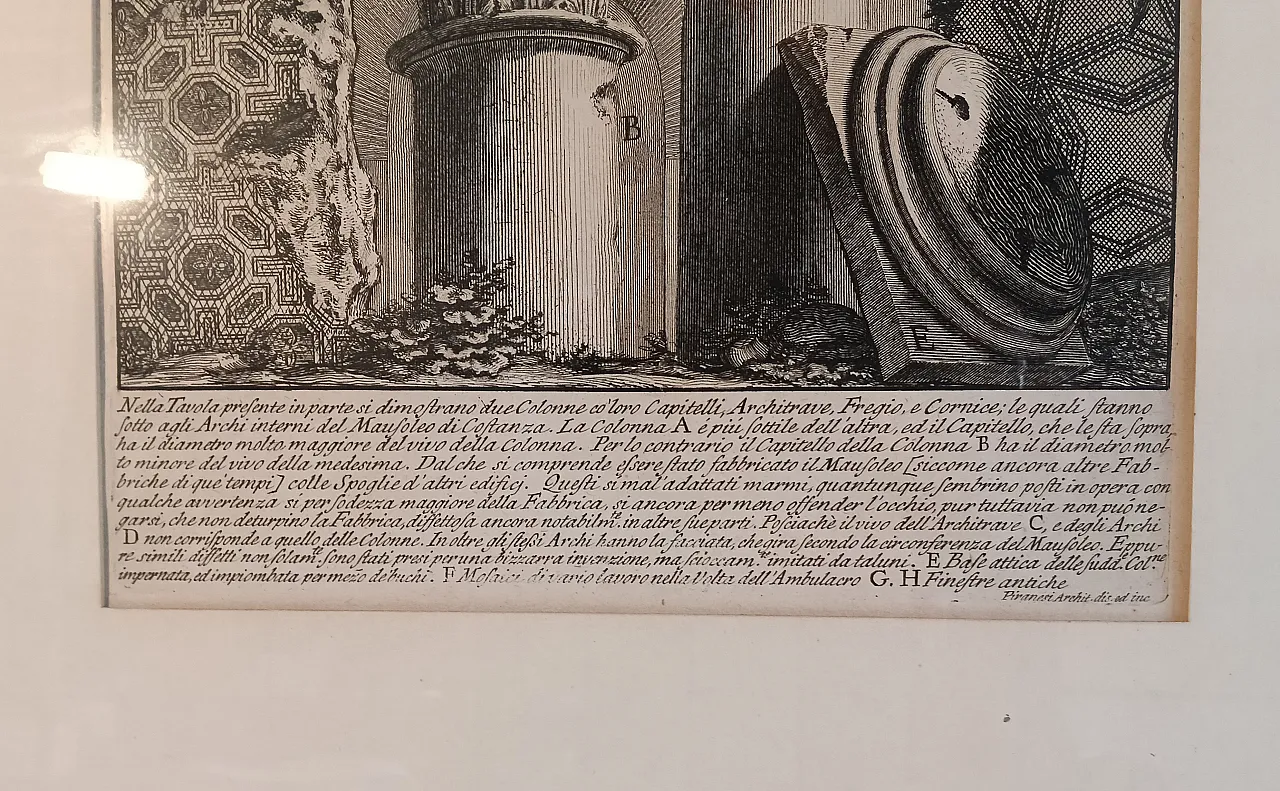 B
E
Nella Tavola presente in parte si dimostrano due Colonne co' loro Capitelli, Architrave, Fregio, e Cornice; le quali stanno
sotto agli Archi interni del Mausoleo di Costanza. La Colonna A è più sottile dell'altra, ed il Capitello, che le sta sopra,
ha il diametro molto maggiore del vivo della Colonna. Per lo contrario il Capitello della Colonna B ha il diametro mol-
to minore del vivo della medesima. Dal che si comprende essere stato fabbricato il Mausoleo [siccome ancora altre Fab-
briche di que' tempi] colle Spoglie d'altri edificj. Questi sì mal'adattati marmi, quantunque sembrino posti in opera con
qualche avvertenza sì per sodezza maggiore della Fabbrica, sì ancora per meno offender l'occhio, pur tuttavia non può ne-
garsi, che non deturpino la Fabbrica, diffettosa ancora notabilm.te in altre sue parti. Posciachè il vivo dell'Architrave C, e degli Archi
D non corrisponde a quello delle Colonne. In oltre gli stessi Archi hanno la facciata, che gira secondo la circonferenza del Mausoleo. Eppu-
re simili diffetti non solam.te sono stati presi per una bizzarra invenzione, ma scioccam.te imitati da taluni. E Base attica delle sudd. Col.nne
impernata, ed impiombata per mezo de buchi. F Mosaici di vario lavoro nella Volta dell'Ambulacro G. H Finestre antiche
Piranesi Archit. dis. ed inc.